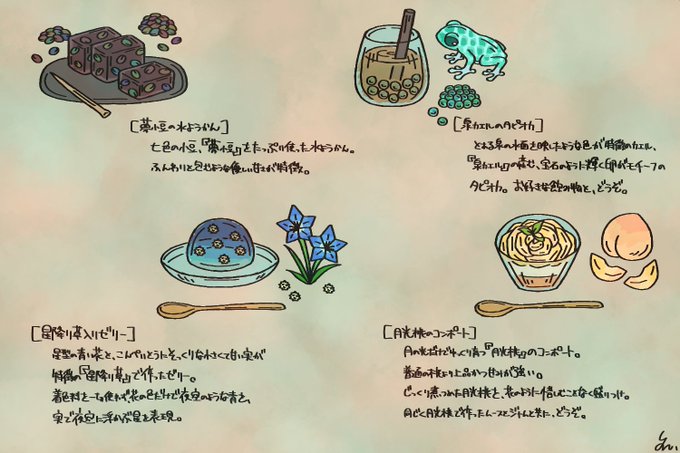 [夢小豆の水ようかん]
七色の小豆、「夢小豆」をたっぷり使った水ようかん。
ふんわりと包むような優しい甘さが特徴。
[泉カエルのタピオカ]
とある泉の水面を映したような色が特徴のカエル、
「泉カエル」の産む、宝石のように輝く卵がモチーフの
タピオカ。お好きな飲み物と、どうぞ。
[星降り草入りゼリー]
星型の青い花と、こんぺいとうにそっくりな小さくて甘い実が
特徴の「星降り草」で作ったゼリー。
着色料を一切使わず、花の色だけで夜空のような青を、
実で夜空に浮かぶ星を表現。
[月光桃のコンポート]
月の光だけでゆっくり育つ「月光桃」のコンポート。
普通の桃より上品かつ甘みが強い。
じっくり煮つめた月光桃を、花のように惜しむことなく盛りつけ。
同じく月光桃で作ったムースとジュレと共に、どうぞ。